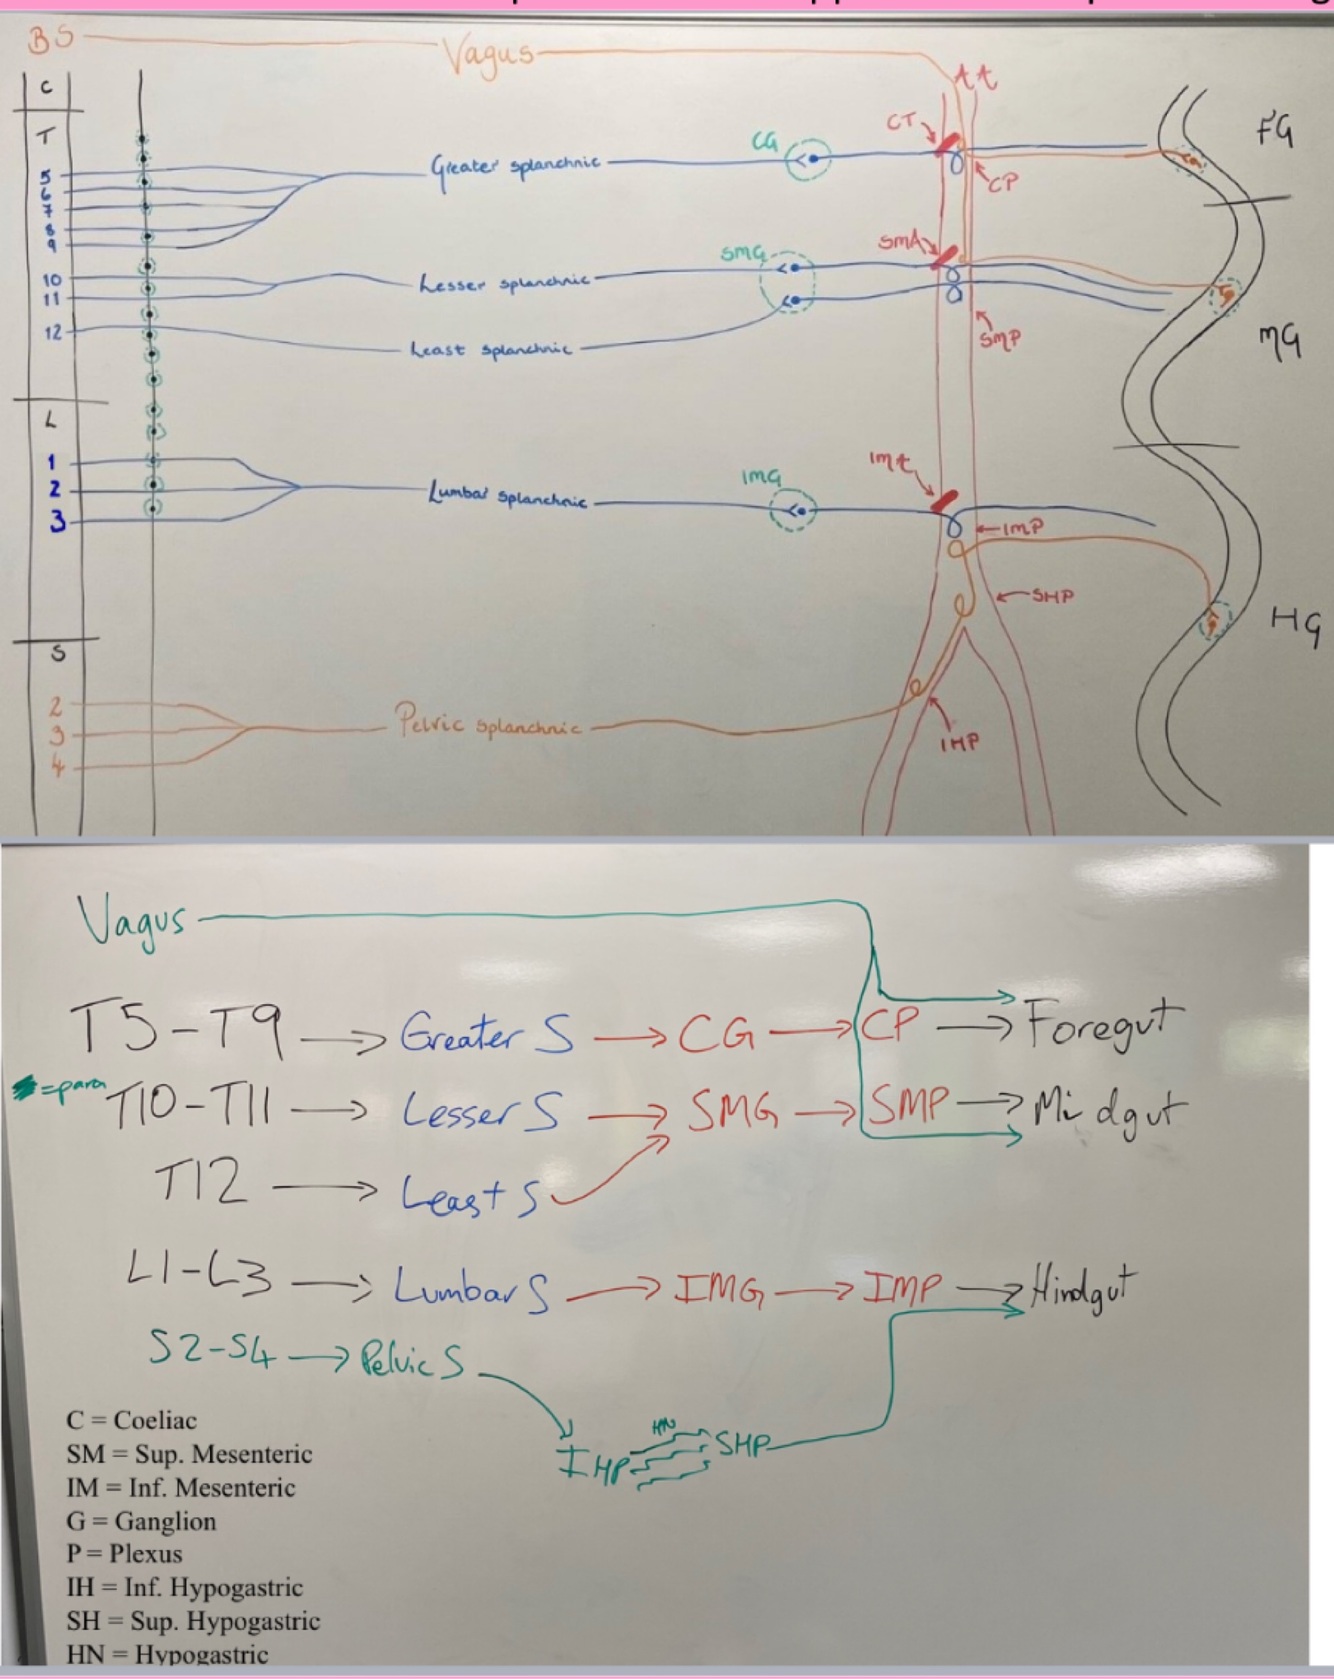 BS Vagus
AA
C
CT
T
CG
FG
5 Greater splanchnic
6
CP
7
8
9
SMG SMA
10 Lesser splanchnic
11
12 Least splanchnic
SMP
MG
L
1
IMG IMA
2 Lumbar splanchnic
3
IMP
SHP
HG
S
2
3 Pelvic splanchnic
4
IHP
Vagus
T5-T9 → Greater S → CG → CP → Foregut
=para
T10-T11 → Lesser S → SMG → SMP → Midgut
T12 → Least S
L1-L3 → Lumbar S → IMG → IMP → Hindgut
S2-S4 → Pelvic S
HN
IHP SHP
C = Coeliac
SM = Sup. Mesenteric
IM = Inf. Mesenteric
G = Ganglion
P = Plexus
IH = Inf. Hypogastric
SH = Sup. Hypogastric
HN = Hypogastric